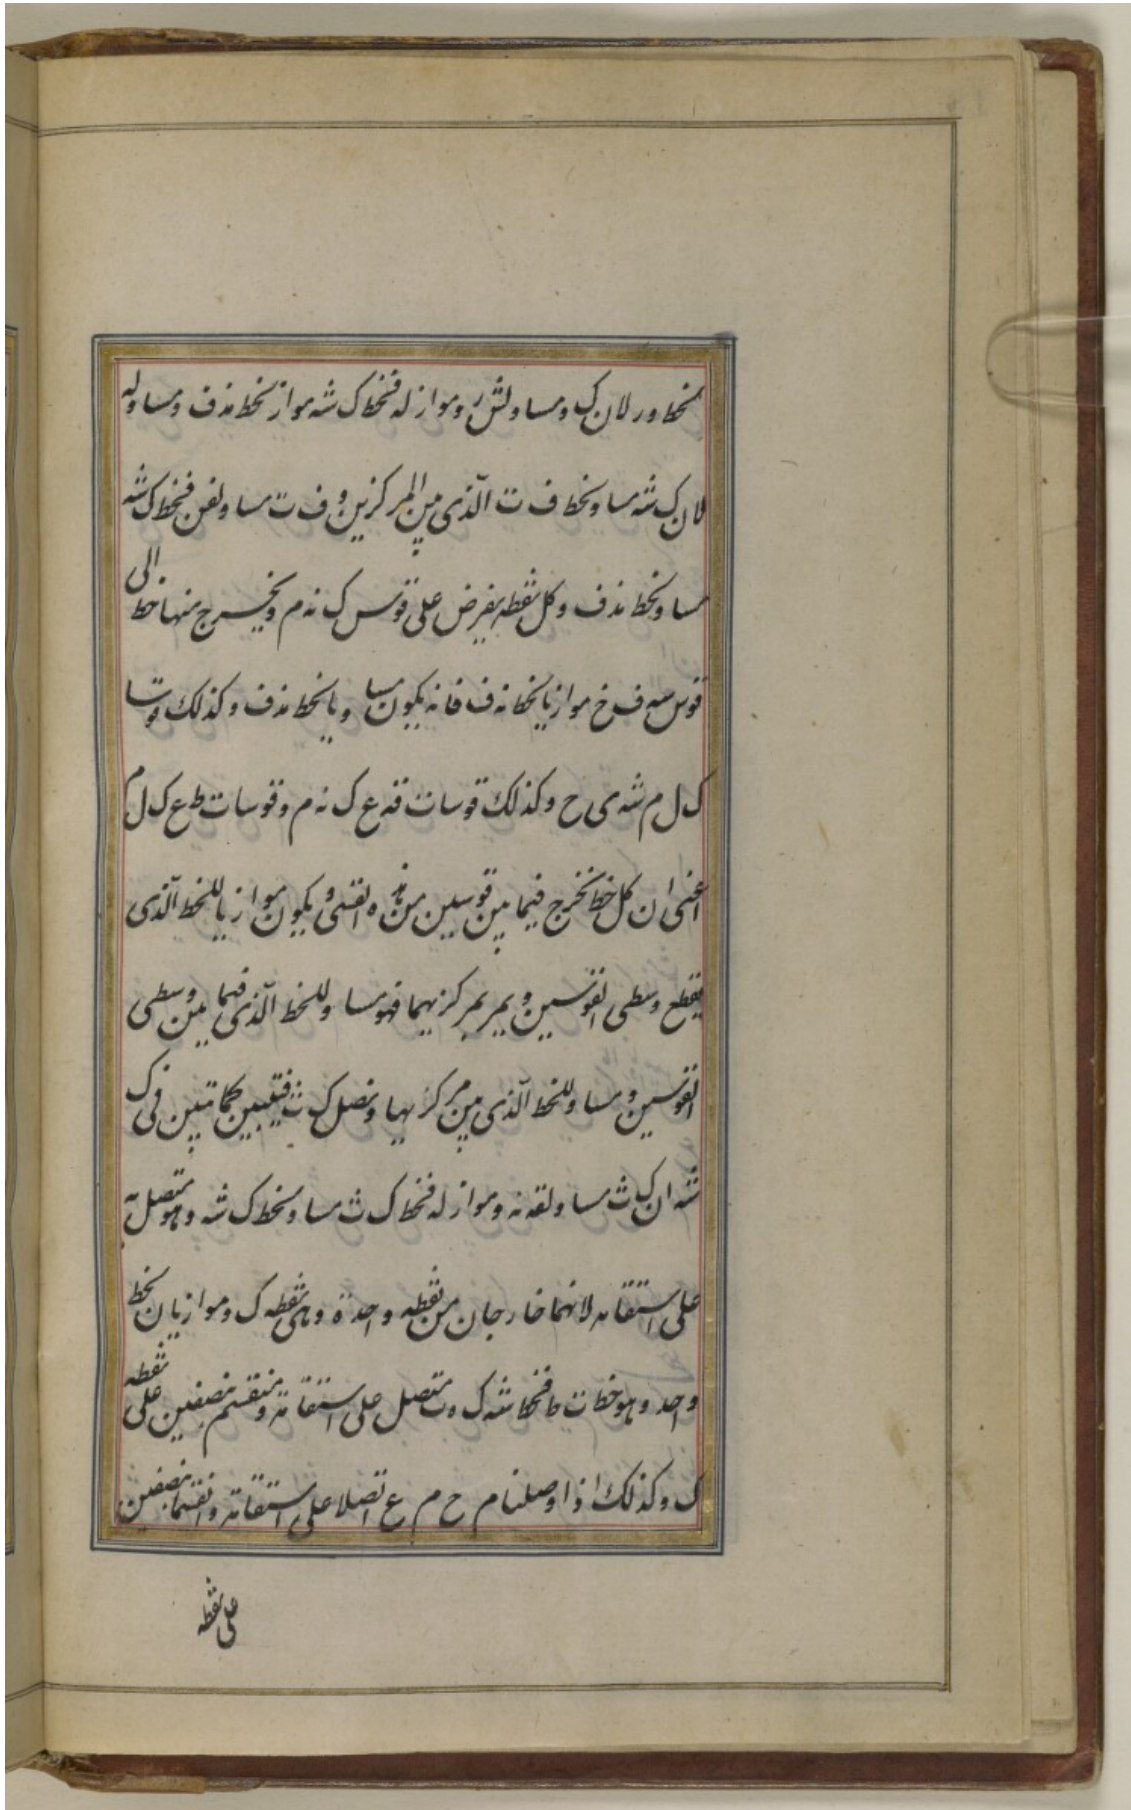 لخط ور لان ک و مساو لش ر و مواز له فخط ک شه مواز لخط ند ف و مساو له
لان ک شه مساو لخط ف ت الذی بین المرکزین و ف ت مساو لفن فخط ک شه
مساو لخط ند ف و کل نقطه یفرض علی قوس ک نه م و یخرج منها خط الی
قوس سه ف خ موازیا لخط نه ف فانه یکون مساویا لخط ند ف و کذلک قوسا
ک ل م شه ی ح و کذلک قوسا ث قه ع ک نه م و قوسا ث ط ع ک ل م
اعنی ان کل خط یخرج فیما بین قوسین من هذه القسی و یکون موازیا للخط الذی
یقطع وسطی القوسین و یمر بمرکزیهما فهو مساو للخط الذی فیما بین وسطی
القوسین و مساو للخط الذی بین مرکزیهما و نصل ک ث فیتبین کما تبین فی ک
شه ان ک ث مساو لقه نه و مواز له فخط ک ث مساو لخط ک شه و هو متصل به
علی استقامه لانهما خارجان من نقطه واحدة وهی نقطه ک و موازیان لخط
واحد و هو خط ت ط فخط شه ک ث متصل علی استقامة و منقسم بنصفین علی نقطه
ک و کذلک اذا وصلنا م ح م ع اتصلا علی استقامة و انقسما بنصفین
علی نقطه